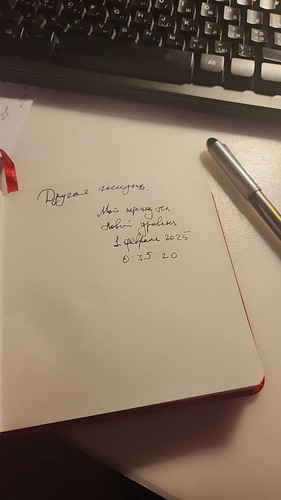 Другая жизнь.
Мой переход на
Новый уровень
1 февраля 2025
0:35:20
Alt